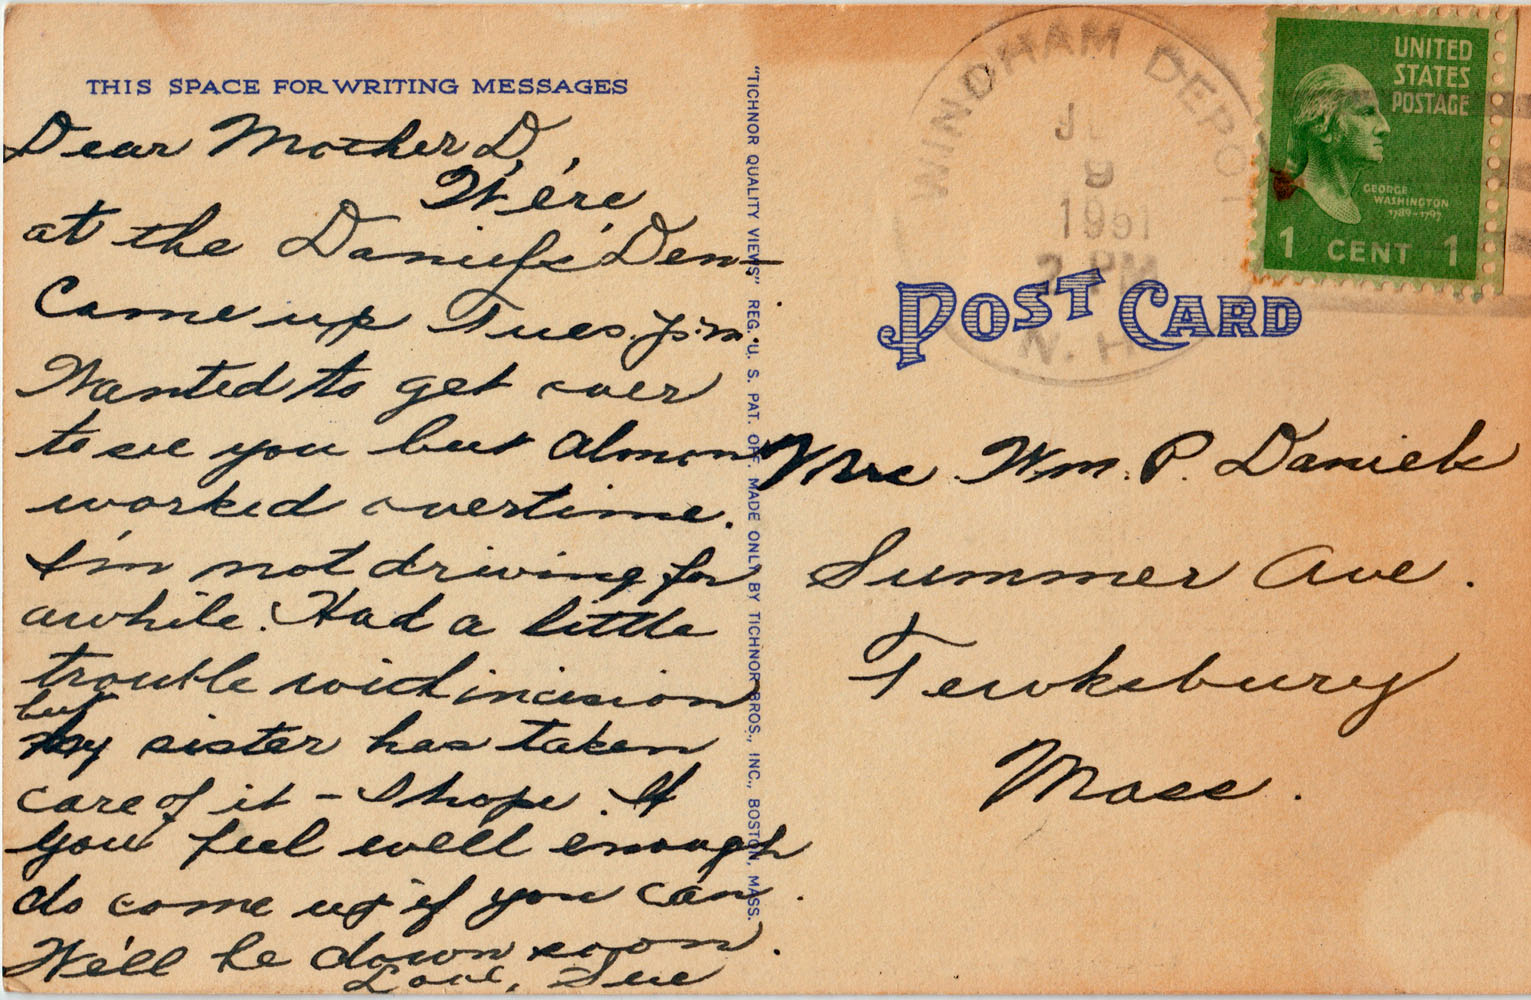 THIS SPACE FOR WRITING MESSAGES
Dear Mother D.,
We're
at the Daniels' Den—
Came up Tues. p.m.
Wanted to get over
to see you but Almon
worked overtime.
I'm not driving for
awhile. Had a little
trouble with incision
but
my sister has taken
care of it – I hope. If
you feel well enough
do come up if you can.
We'll be down soon.
Love, Sue
"TICHNOR QUALITY VIEWS" REG. U. S. PAT. OFF. MADE ONLY BY TICHNOR BROS., INC., BOSTON, MASS.
WINDHAM DEPOT
9
1951
2 PM
N. H.
UNITED
STATES
POSTAGE
GEORGE
WASHINGTON
1789-1797
1 CENT 1
POST CARD
Mrs. Wm. P. Daniels
Summer Ave.
Tewksbury
Mass.